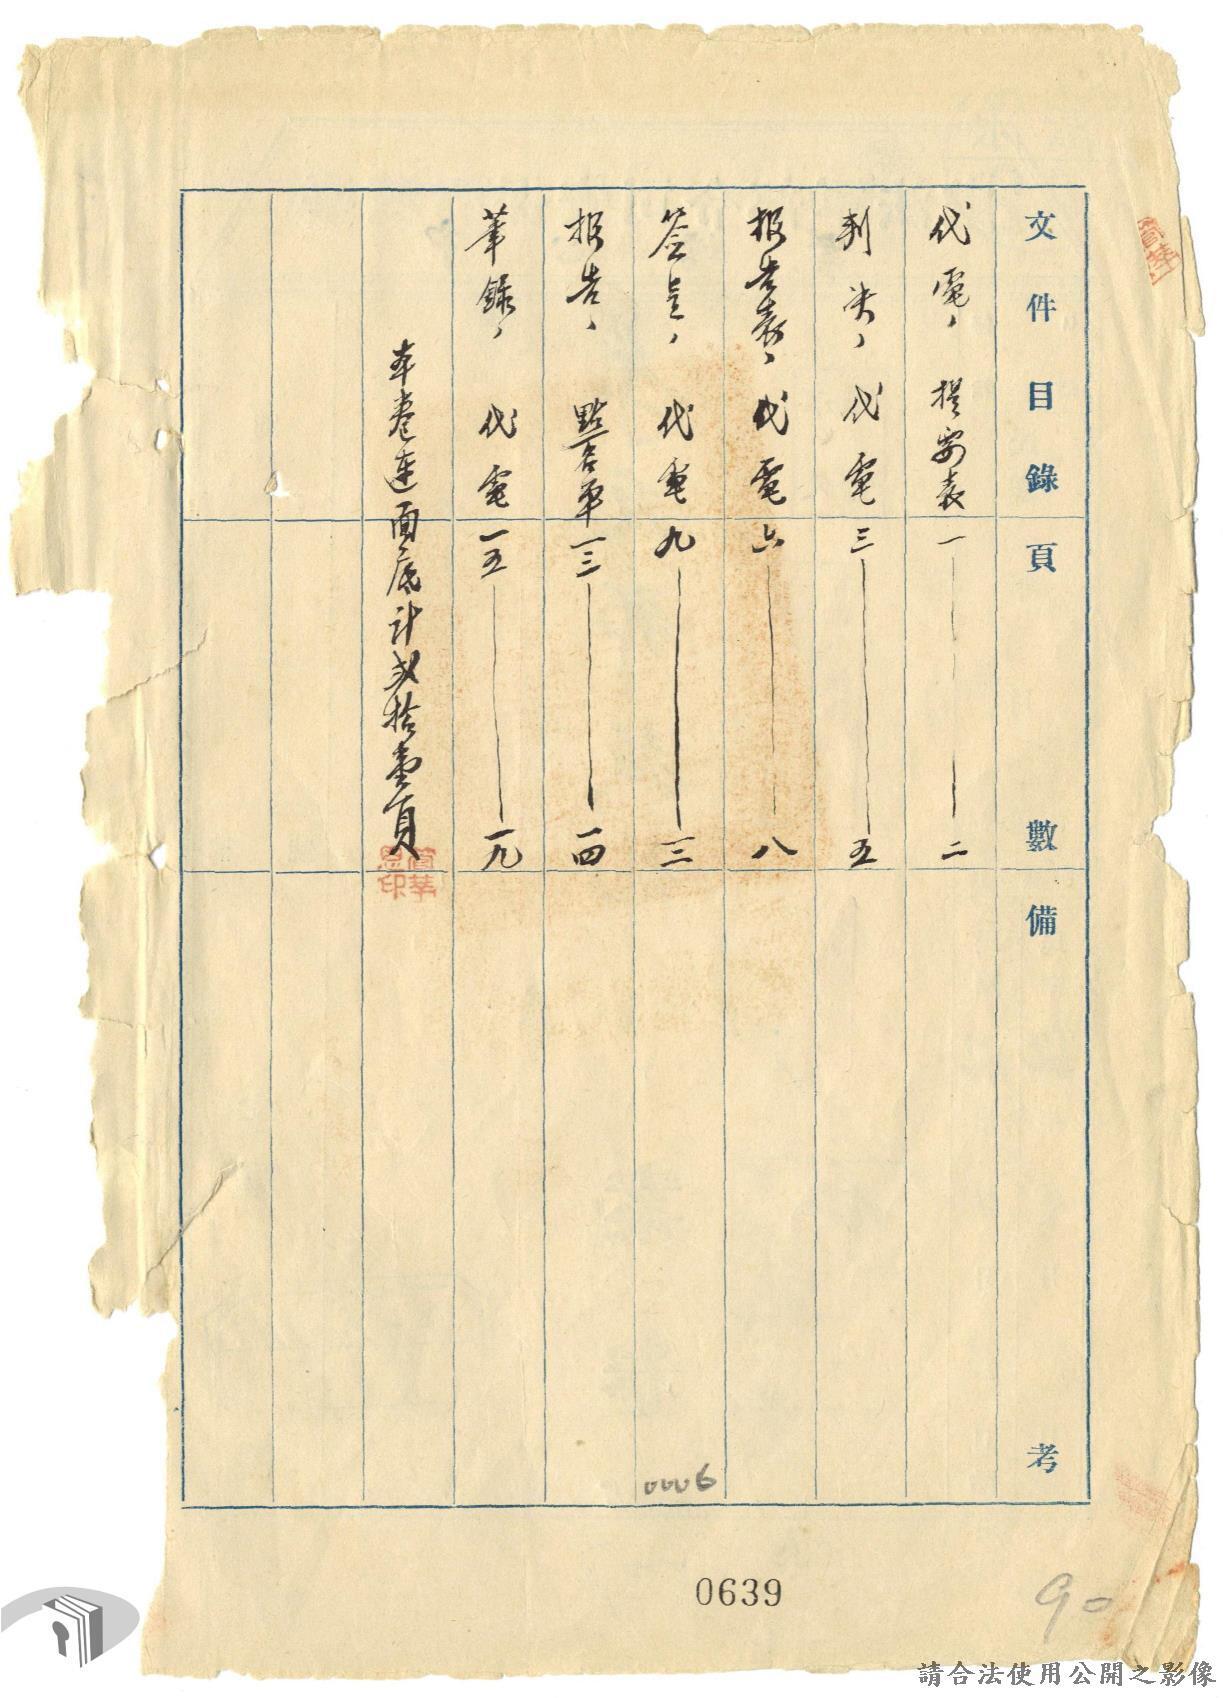 文件目錄 頁數 備考
代電、提案表 一——二
判決、代電 三——五
報告表、代電 六——八
簽呈、代電 九——一三
報告、點名單 一三——一四
筆錄、代電 一五——一九
本卷連面底計貳拾壹頁
0006
0639
90
請合法使用公開之影像